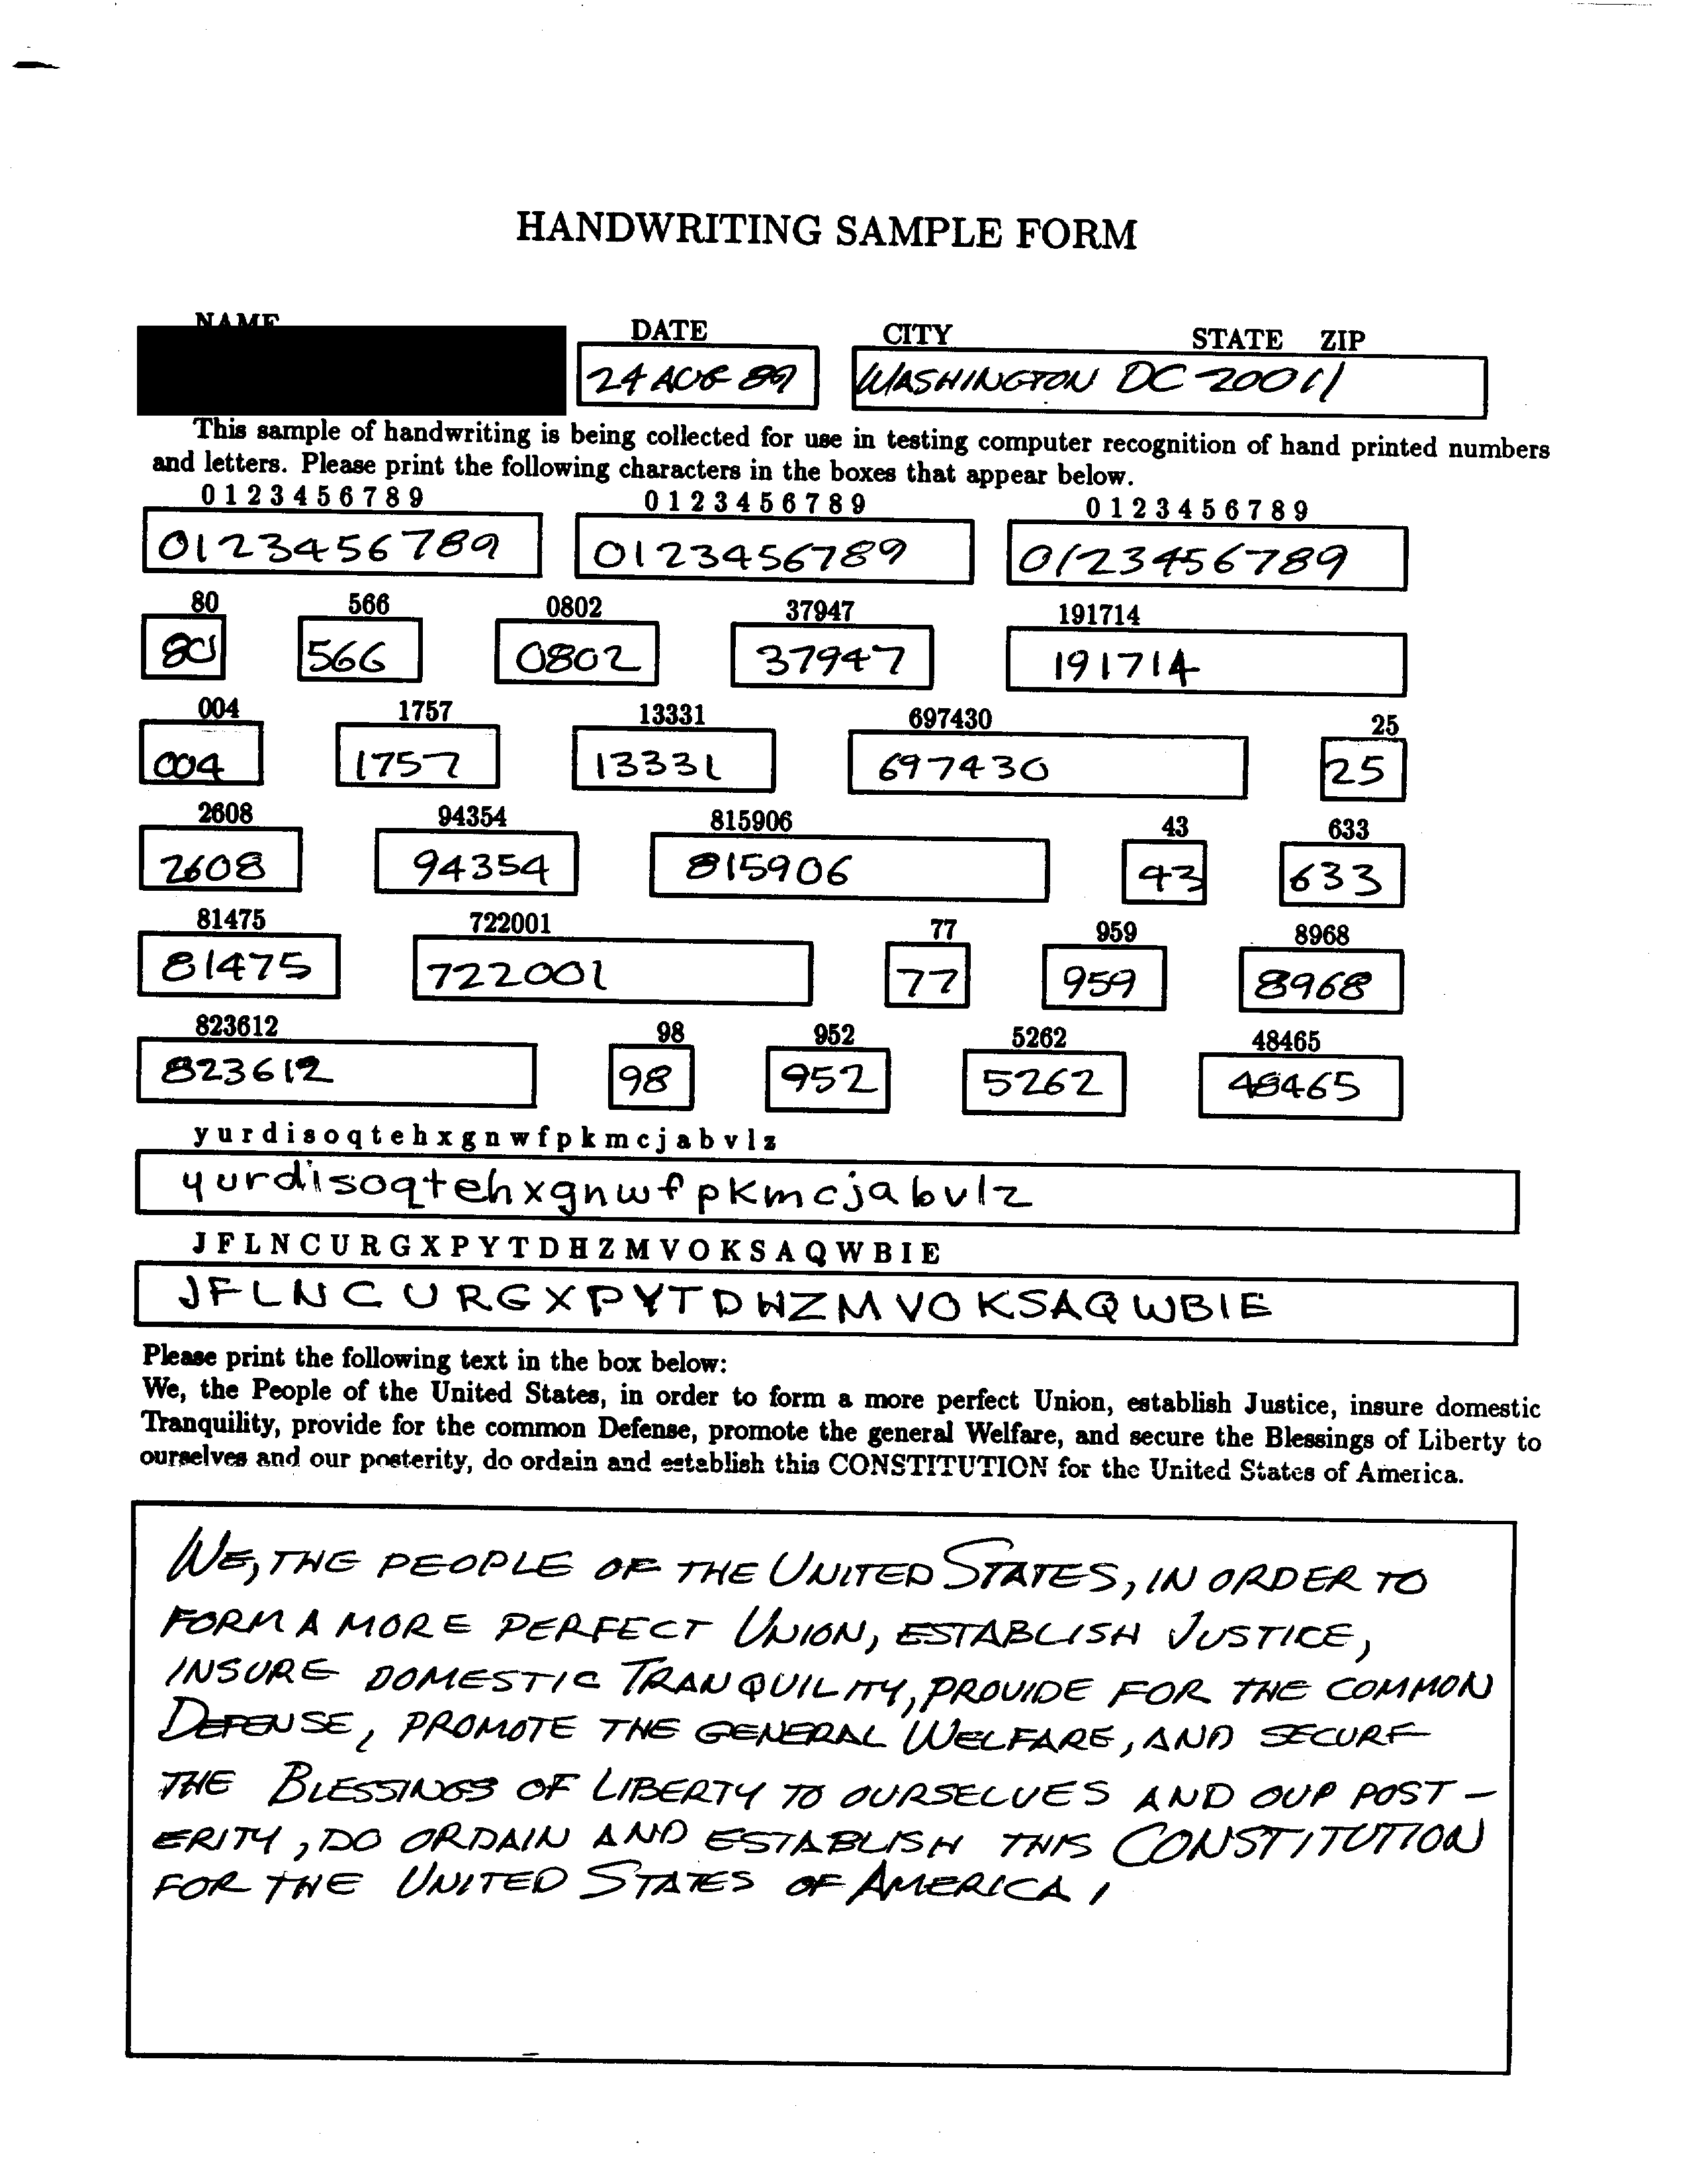 HANDWRITING SAMPLE FORM
NAME DATE CITY STATE ZIP
24 AUG 89 WASHINGTON DC 20011
This sample of handwriting is being collected for use in testing computer recognition of hand printed numbers
and letters. Please print the following characters in the boxes that appear below.
0 1 2 3 4 5 6 7 8 9 0 1 2 3 4 5 6 7 8 9 0 1 2 3 4 5 6 7 8 9
0123456789 0123456789 0123456789
80 566 0802 37947 191714
80 566 0802 37947 191714
004 1757 13331 697430 25
004 1757 13331 697430 25
2608 94354 815906 43 633
2608 94354 815906 43 633
81475 722001 77 959 8968
81475 722001 77 959 8968
823612 98 952 5262 48465
823612 98 952 5262 48465
y u r d i s o q t e h x g n w f p k m c j a b v l z
yurdisoqtehxgnwfpkmcjabvlz
J F L N C U R G X P Y T D H Z M V O K S A Q W B I E
JFLNCURGXPYTDHZMVOKSAQWBIE
Please print the following text in the box below:
We, the People of the United States, in order to form a more perfect Union, establish Justice, insure domestic
Tranquility, provide for the common Defense, promote the general Welfare, and secure the Blessings of Liberty to
ourselves and our posterity, do ordain and establish this CONSTITUTION for the United States of America.
WE, THE PEOPLE OF THE UNITED STATES, IN ORDER TO
FORM A MORE PERFECT UNION, ESTABLISH JUSTICE,
INSURE DOMESTIC TRANQUILITY, PROVIDE FOR THE COMMON
DEFENSE, PROMOTE THE GENERAL WELFARE, AND SECURE
THE BLESSINGS OF LIBERTY TO OURSELVES AND OUR POST-
ERITY, DO ORDAIN AND ESTABLISH THIS CONSTITUTION
FOR THE UNITED STATES OF AMERICA.